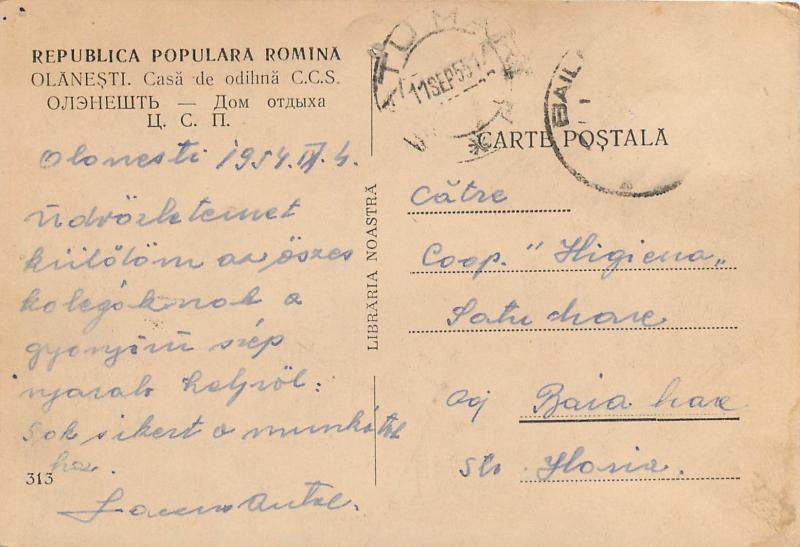 REPUBLICA POPULARA ROMINA
OLĂNEȘTI. Casă de odihnă C.C.S.
ОЛЭНЕШТЬ — Дом отдыха
Ц. С. П.
Olonesti 1954. IX. 4.
Üdvözletemet
küldöm az öszes
kolegáknak a
gyönyörü szép
nyaraló helyröl:
Sok sikert a munkátok
hoz.
313
LIBRĂRIA NOASTRĂ
11 SEP 55
BAIL
CARTE POȘTALĂ
Către
Coop. "Higiena"
Satu Mare
Baia Mare
Str. Horia.